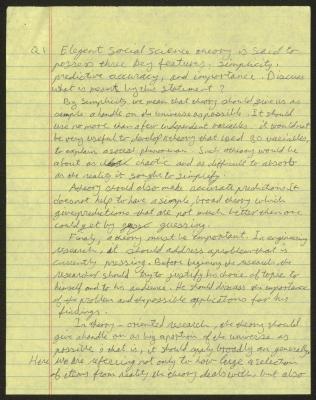 Q1 Elegant social science theory is said to
possess three key features, simplicity,
predictive accuracy, and importance. Discuss
what is meant by this statement?
By simplicity, we mean that theory should give us as
simple a handle on the universe as possible. It should
use no more than a few independent variables. It would not
be very useful to develop theory that used 30 variables,
to explain a social phenomenon. Such a theory would be
about as chaotic and as difficult to absorb
as the reality it sought to simplify.
A theory should also make accurate predictions. it
does not help to have a simple, broad theory which
gives predictions that are not much better than one
could get by guessing.
Finally, a theory must be important. In engineering
research, it should address a problem that is
currently pressing. Before begining the research, the
researcher should try to justify his choice of topic to
himself and to his audience. He should discuss the importance
of the problem and the possible applications for his
findings.
In theory-oriented research, the theory should
give a handle on as big a portion of the universe as
possible; that is, it should apply broadly and generally
Here we are refering not only to how large a selection
of items from reality the theory deals with, but also